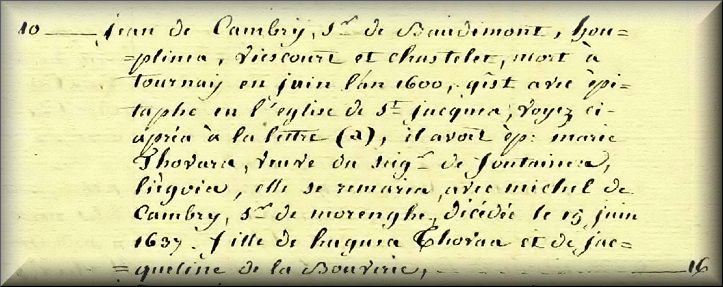 10 — jean de Cambry, Sr. de Baudimont, hou=
=plima, Viescourt et chastelet, mort à
tournay en juin l'an 1600, gist avec épi=
taphe en l'eglise de St. jacques, voyez ci-
après à la lettre (a), il avoit èp: marie
Thovars, veuve du seigr. de fontaines,
liégois, elle se remaria, avec michel de
Cambry, Sr. de morenghe, décédée le 15 juin
1637. fille de hugues Thovaa et de jac=
=queline de la Bouverie, — 16